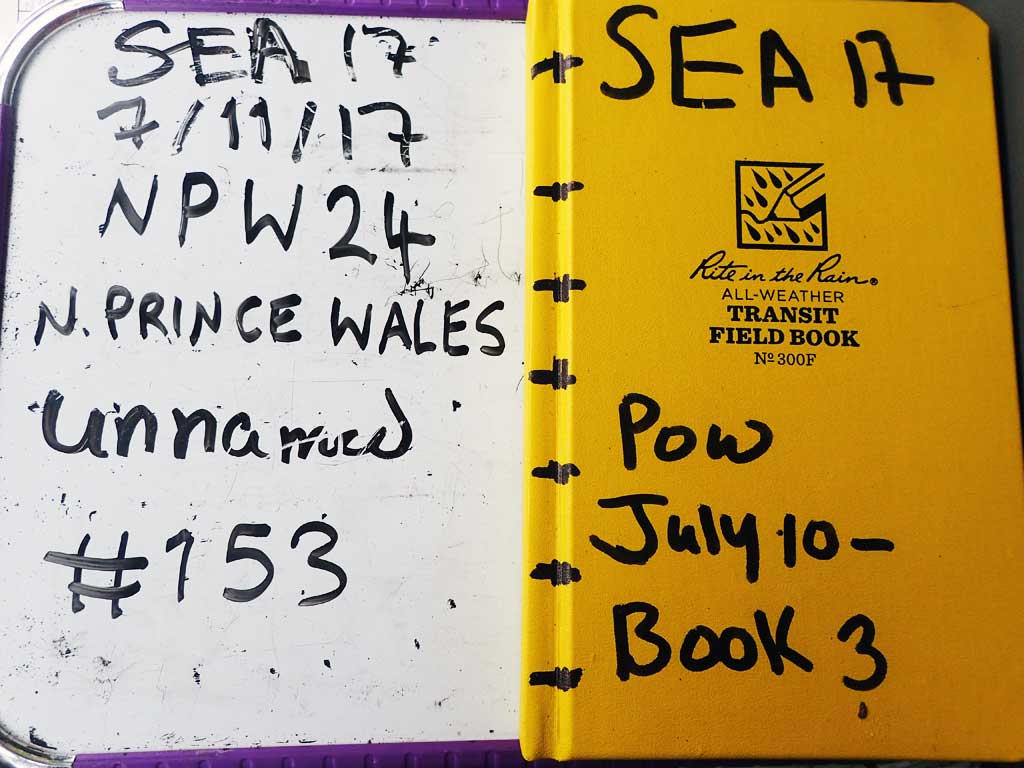 SEA 17
7/11/17
NPW 24
N. PRINCE WALES
unnamed
#153
SEA 17
Rite in the Rain®
ALL-WEATHER
TRANSIT
FIELD BOOK
Nº 300F
POW
July 10-
BOOK 3